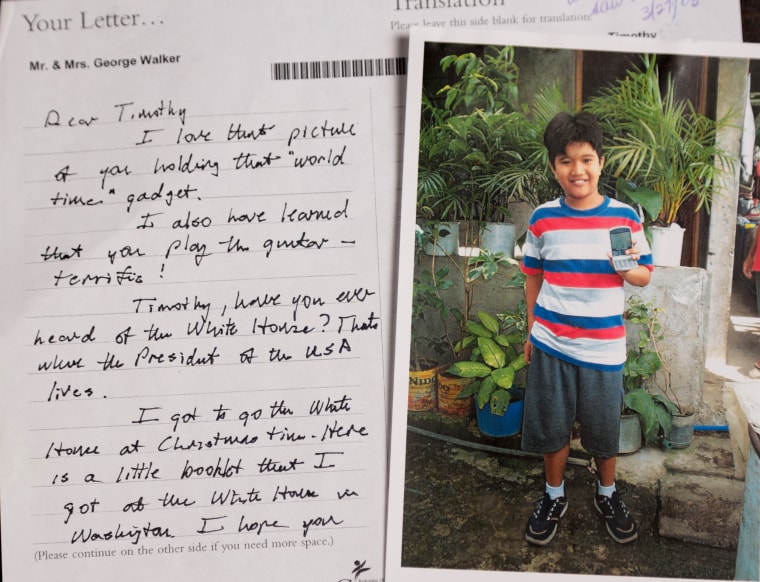 Your Letter...
Translation
Please leave this side blank for translation.
3/27/03
Timothy
Mr. & Mrs. George Walker
Dear Timothy
I love that picture
of you holding that "world
time" gadget.
I also have learned
that you play the guitar –
terrific!
Timothy, have you ever
heard of the White House? That's
where the President of the USA
lives.
I got to go the White
House at Christmas time. Here
is a little booklet that I
got at the White House in
Washington. I hope you
(Please continue on the other side if you need more space.)
NIDO